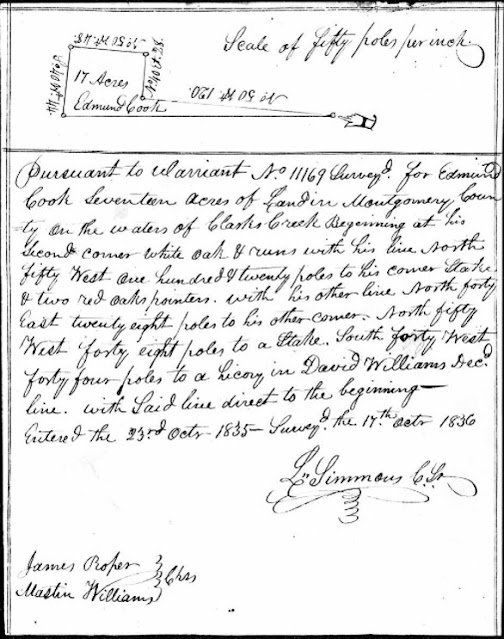 Scale of fifty poles per inch.
No 50 W. 48
S 40 W. 44
No 40 E. 28
17 Acres
Edmund Cook
No 50 W. 120
Pursuant to Warrant No 11169 Survey.d for Edmund
Cook Seventeen acres of Land in Montgomery Coun
ty on the waters of Clarks Creek Beginning at his
Second corner white oak & runs with his line North
fifty West one hundred & twenty poles to his corner Stake
& two red oaks pointers. with his other line North forty
East twenty eight poles to his other corner. North fifty
West forty eight poles to a Stake. South forty West
forty four poles to a hicory in David Williams Dec.d
line. with Said line direct to the beginning—
Entered the 23rd Octr 1835— Survey.d the 17.th octr 1836
Simmons C. Sr
James Roper
Martin Williams
Chrs